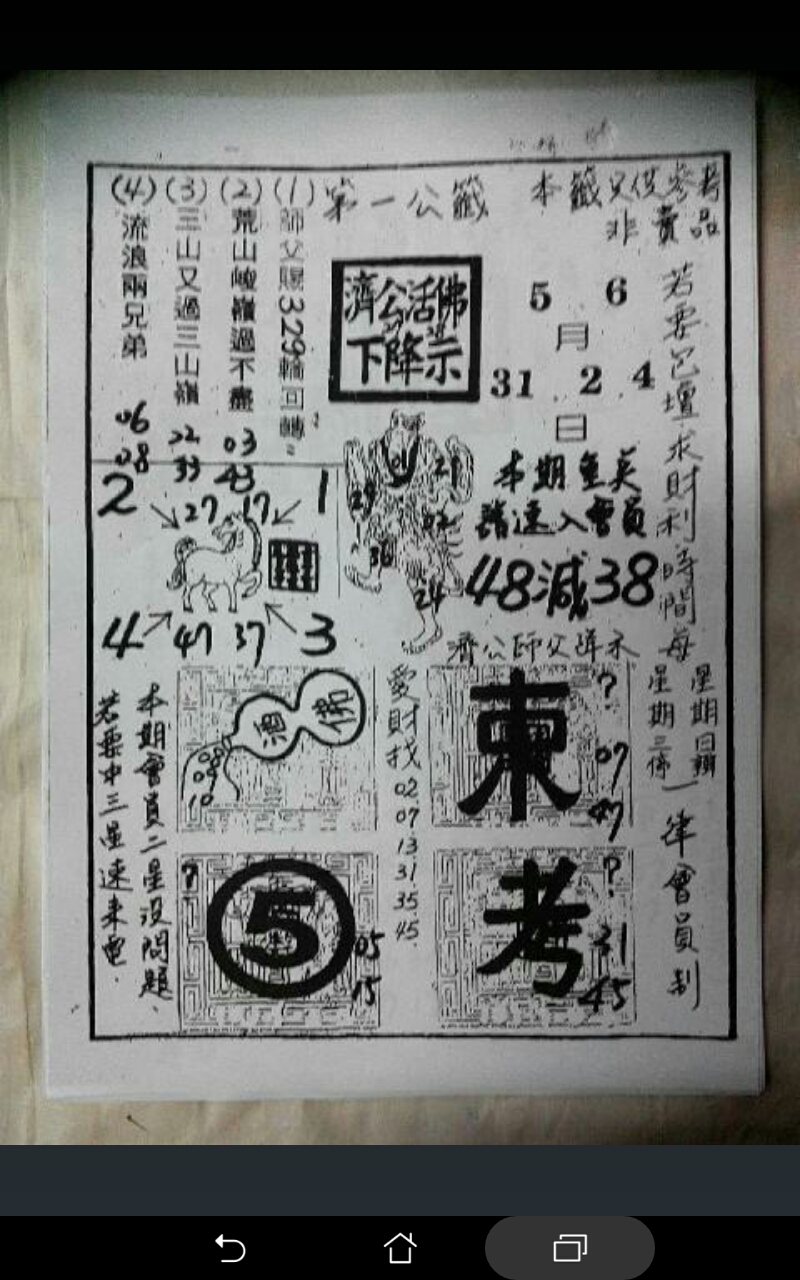 本籤只供參考
非賣品
第一公籤
(1)師父賜329輪回轉
(2)荒山峻嶺過不盡
03
43
(3)三山又過三山嶺
22
33
(4)流浪兩兄弟
06
08
濟公活佛
下降示
5 6
月
31 2 4
日
本期
請速入會員
48減38
濟公師父降示
若要己壇求財利時間每
星期日
星期三
一律會員制
2
27
17
1
4
47
37
3
29
21
02
36
24
佛
酒
09
10
愛財找
02
07
13
31
35
45
東
?
07
47
?
5
05
15
考
?
31
45
本期會員二星沒問題
若要中三星速來電